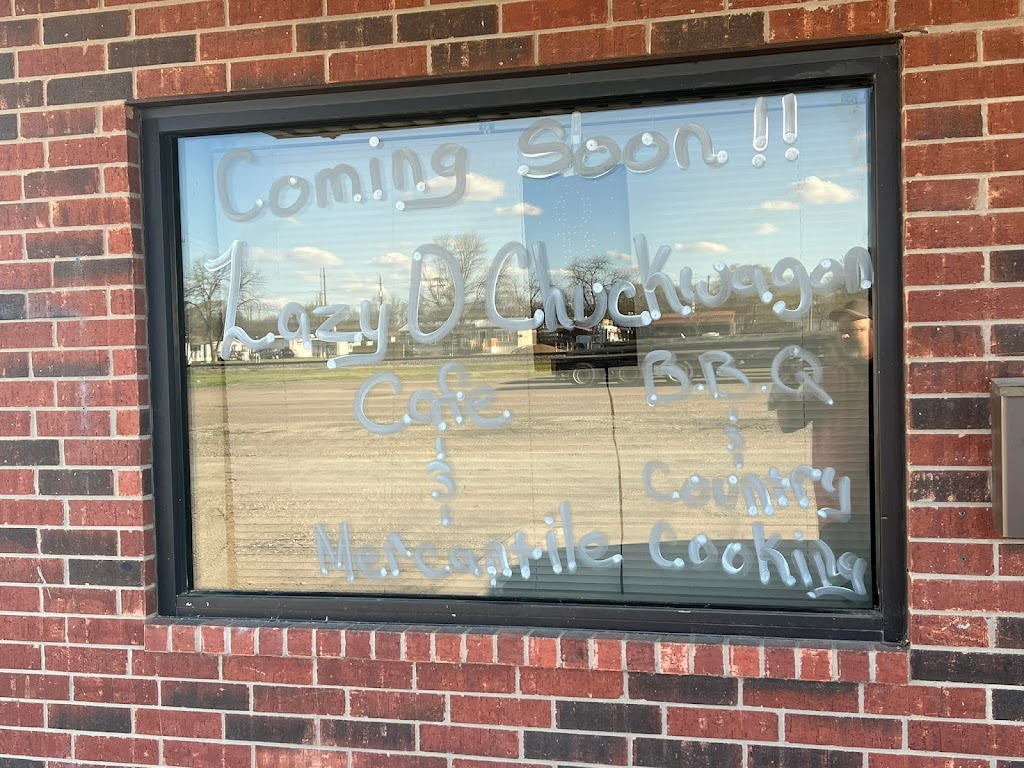 Coming Soon!!
Lazy D Chuckwagon
Cafe
&
Mercantile
B.B.Q
&
Country
Cooking